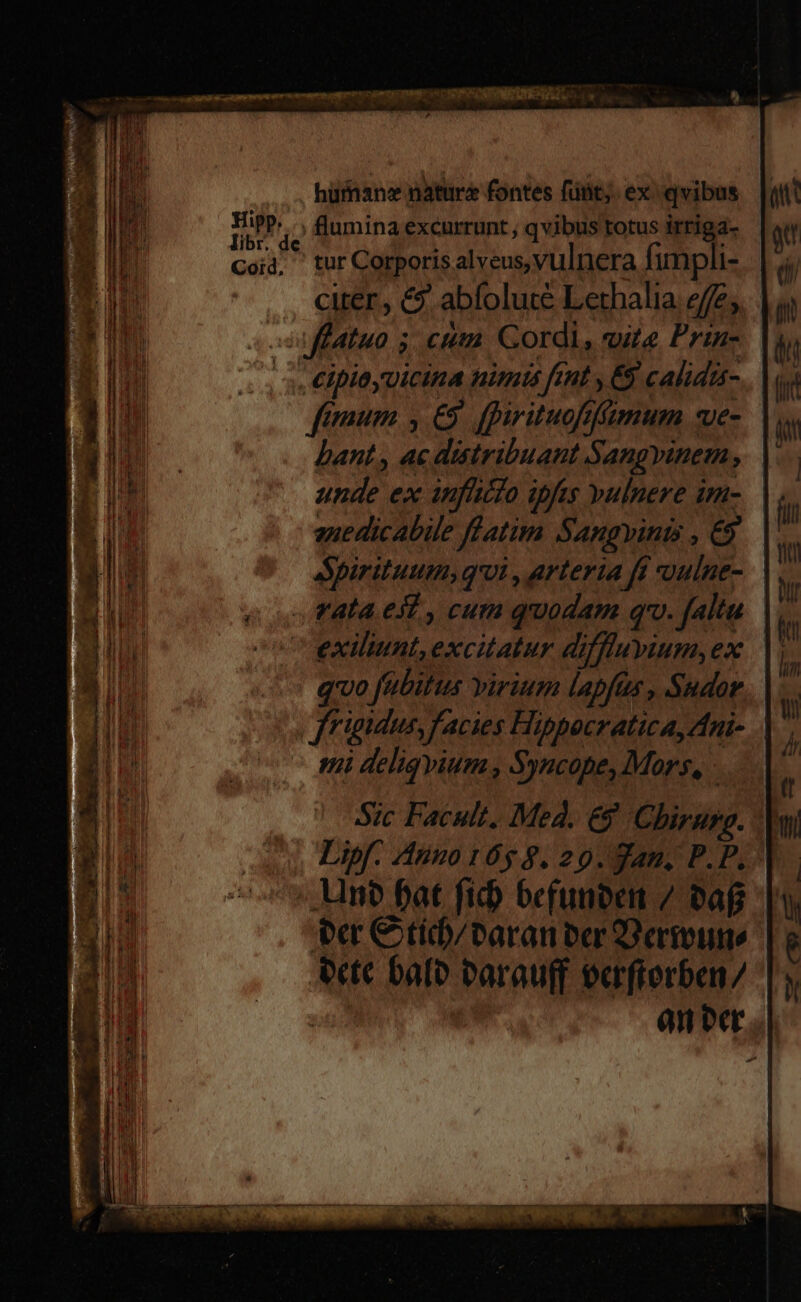 humanæ naturæ fontes ſunt, ex qvibus
Hipp. libr. de Cord.
flumina excurrunt, qvibus totus irriga-
tur Corporis alveus, vulnera ſimpli-
citer, & abſolutè Lethalia eſſe,
ſtatuo ; cùm Cordi, vitæ Prin-
cipio, vicina nimis ſint, & calidis-
ſimum, & ſpirituoſiſſimum ve-
hant, ac distribuant Sangvinem,
unde ex inflicto ipſis vulnere im-
medicabile ſtatim Sangvinis, &
Spirituum, qvi, arteria ſi vulne-
rata est, cum qvodam qv. ſaltu
exiliunt, excitatur diffluvium, ex
qvo ſubitus virium lapſus, Sudor
frigidus, facies Hippocratica, Ani-
mi deliqvium, Syncope, Mors,
Sic Facult. Med. & Chirurg.
Lipſ. Anno 1658. 29. Jan. P.P.
Und hat ſich befunden / daß
der Stich / daran der Verwun⸗
dete bald darauff verſtorben /
an der